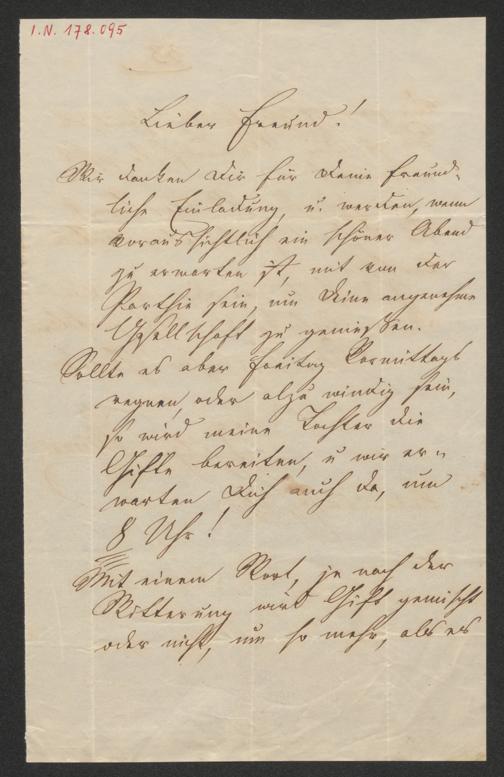 I.N. 178.095
Lieber Freund!
Wir danken Dir für Deine freund-
liche Einladung, u. werden, wenn
voraussichtlich ein schöner Abend
zu erwarten ist, mit von der
Parthie sein, um Deine angenehme
Gesellschaft zu geniessen.
Sollte es aber Freitag Vormittags
regnen, oder alzu windig sein,
so wird meine Tochter die
Gifte bereiten, u wir er-
warten Dich auch da, um
8 Uhr!
Mit einem Wort, je nach der
Witterung wird Gift gemischt
oder nicht, um so mehr, als es